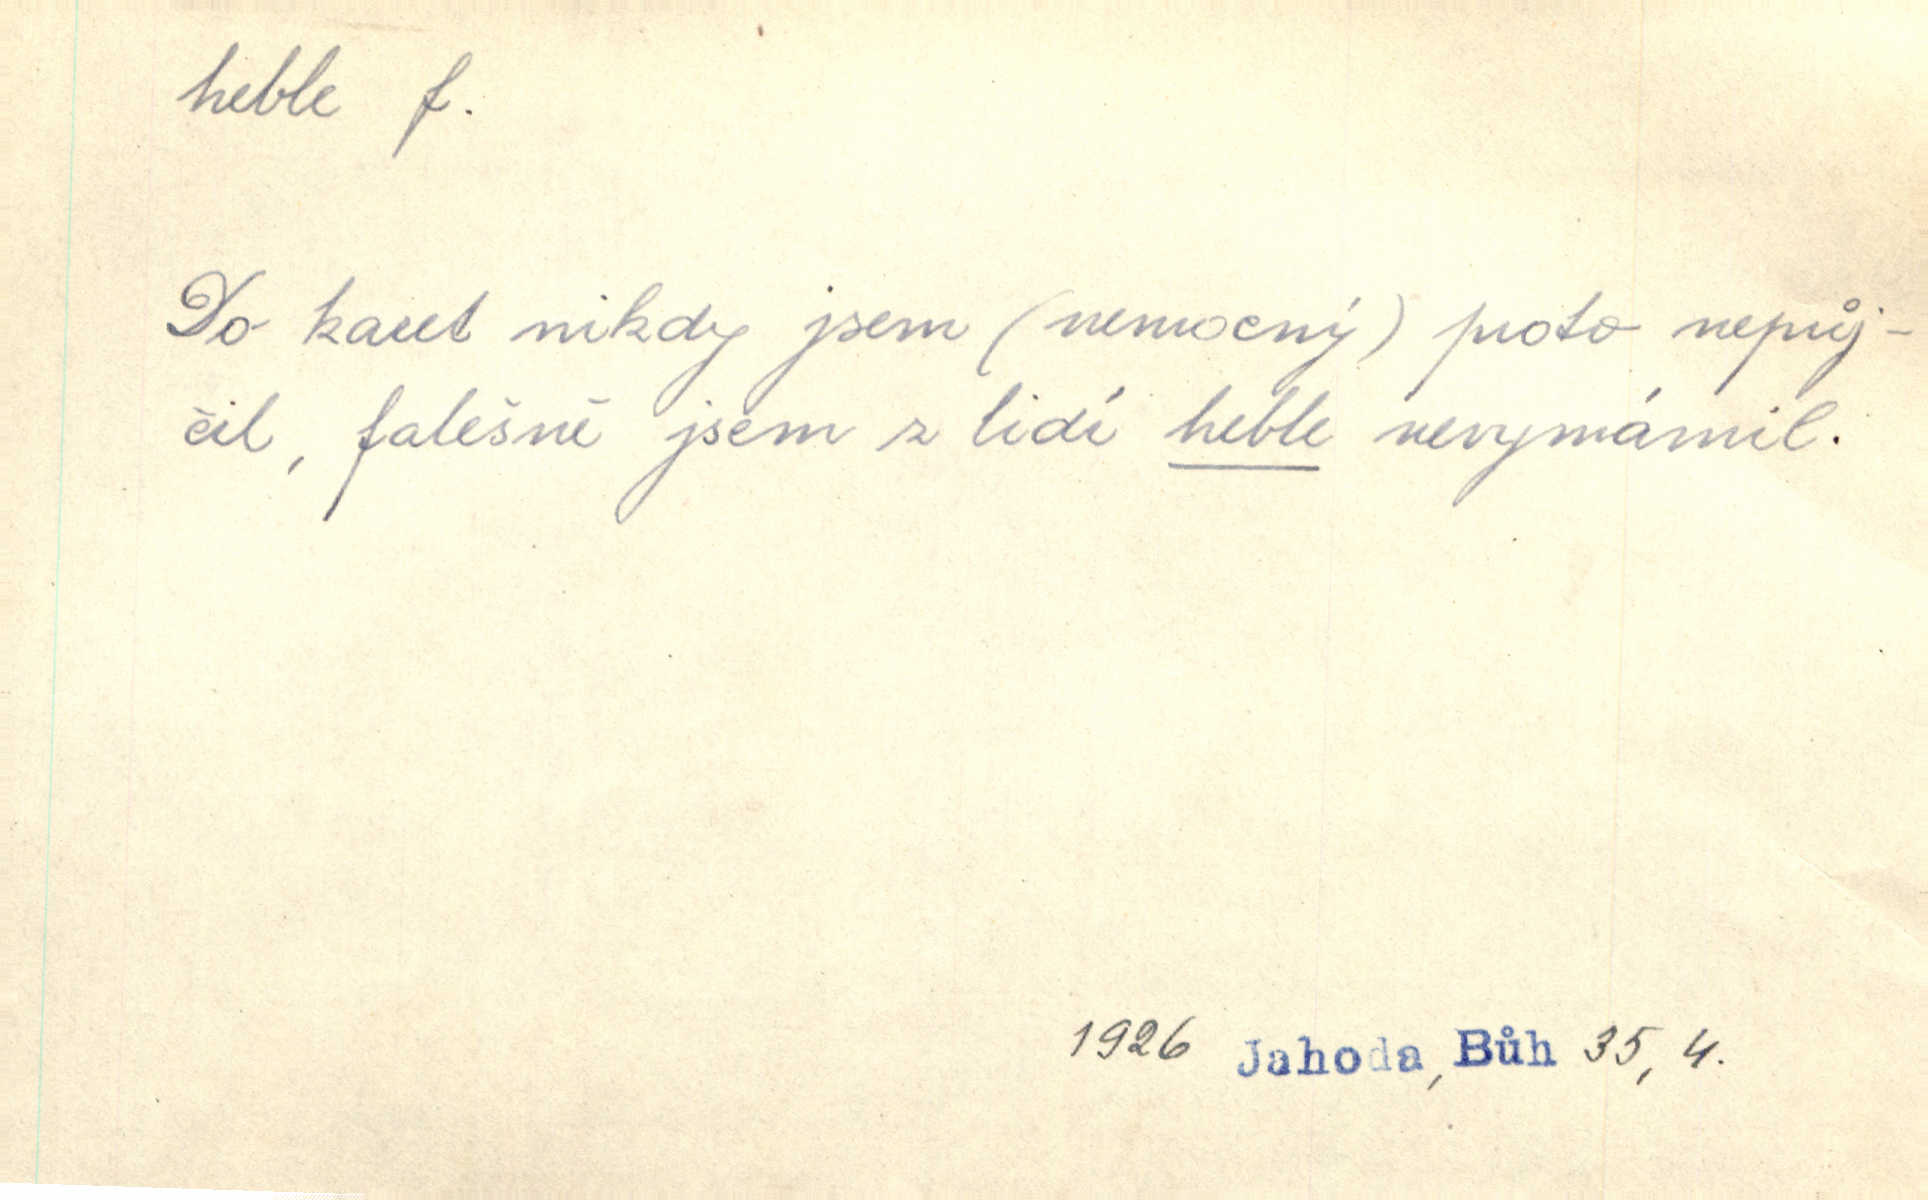 heble f.
Do karet nikdy jsem (nemocný) proto nepůj-
čil, falešně jsem z lidí heble nevymámil.
1926 Jahoda, Bůh 35, 4.